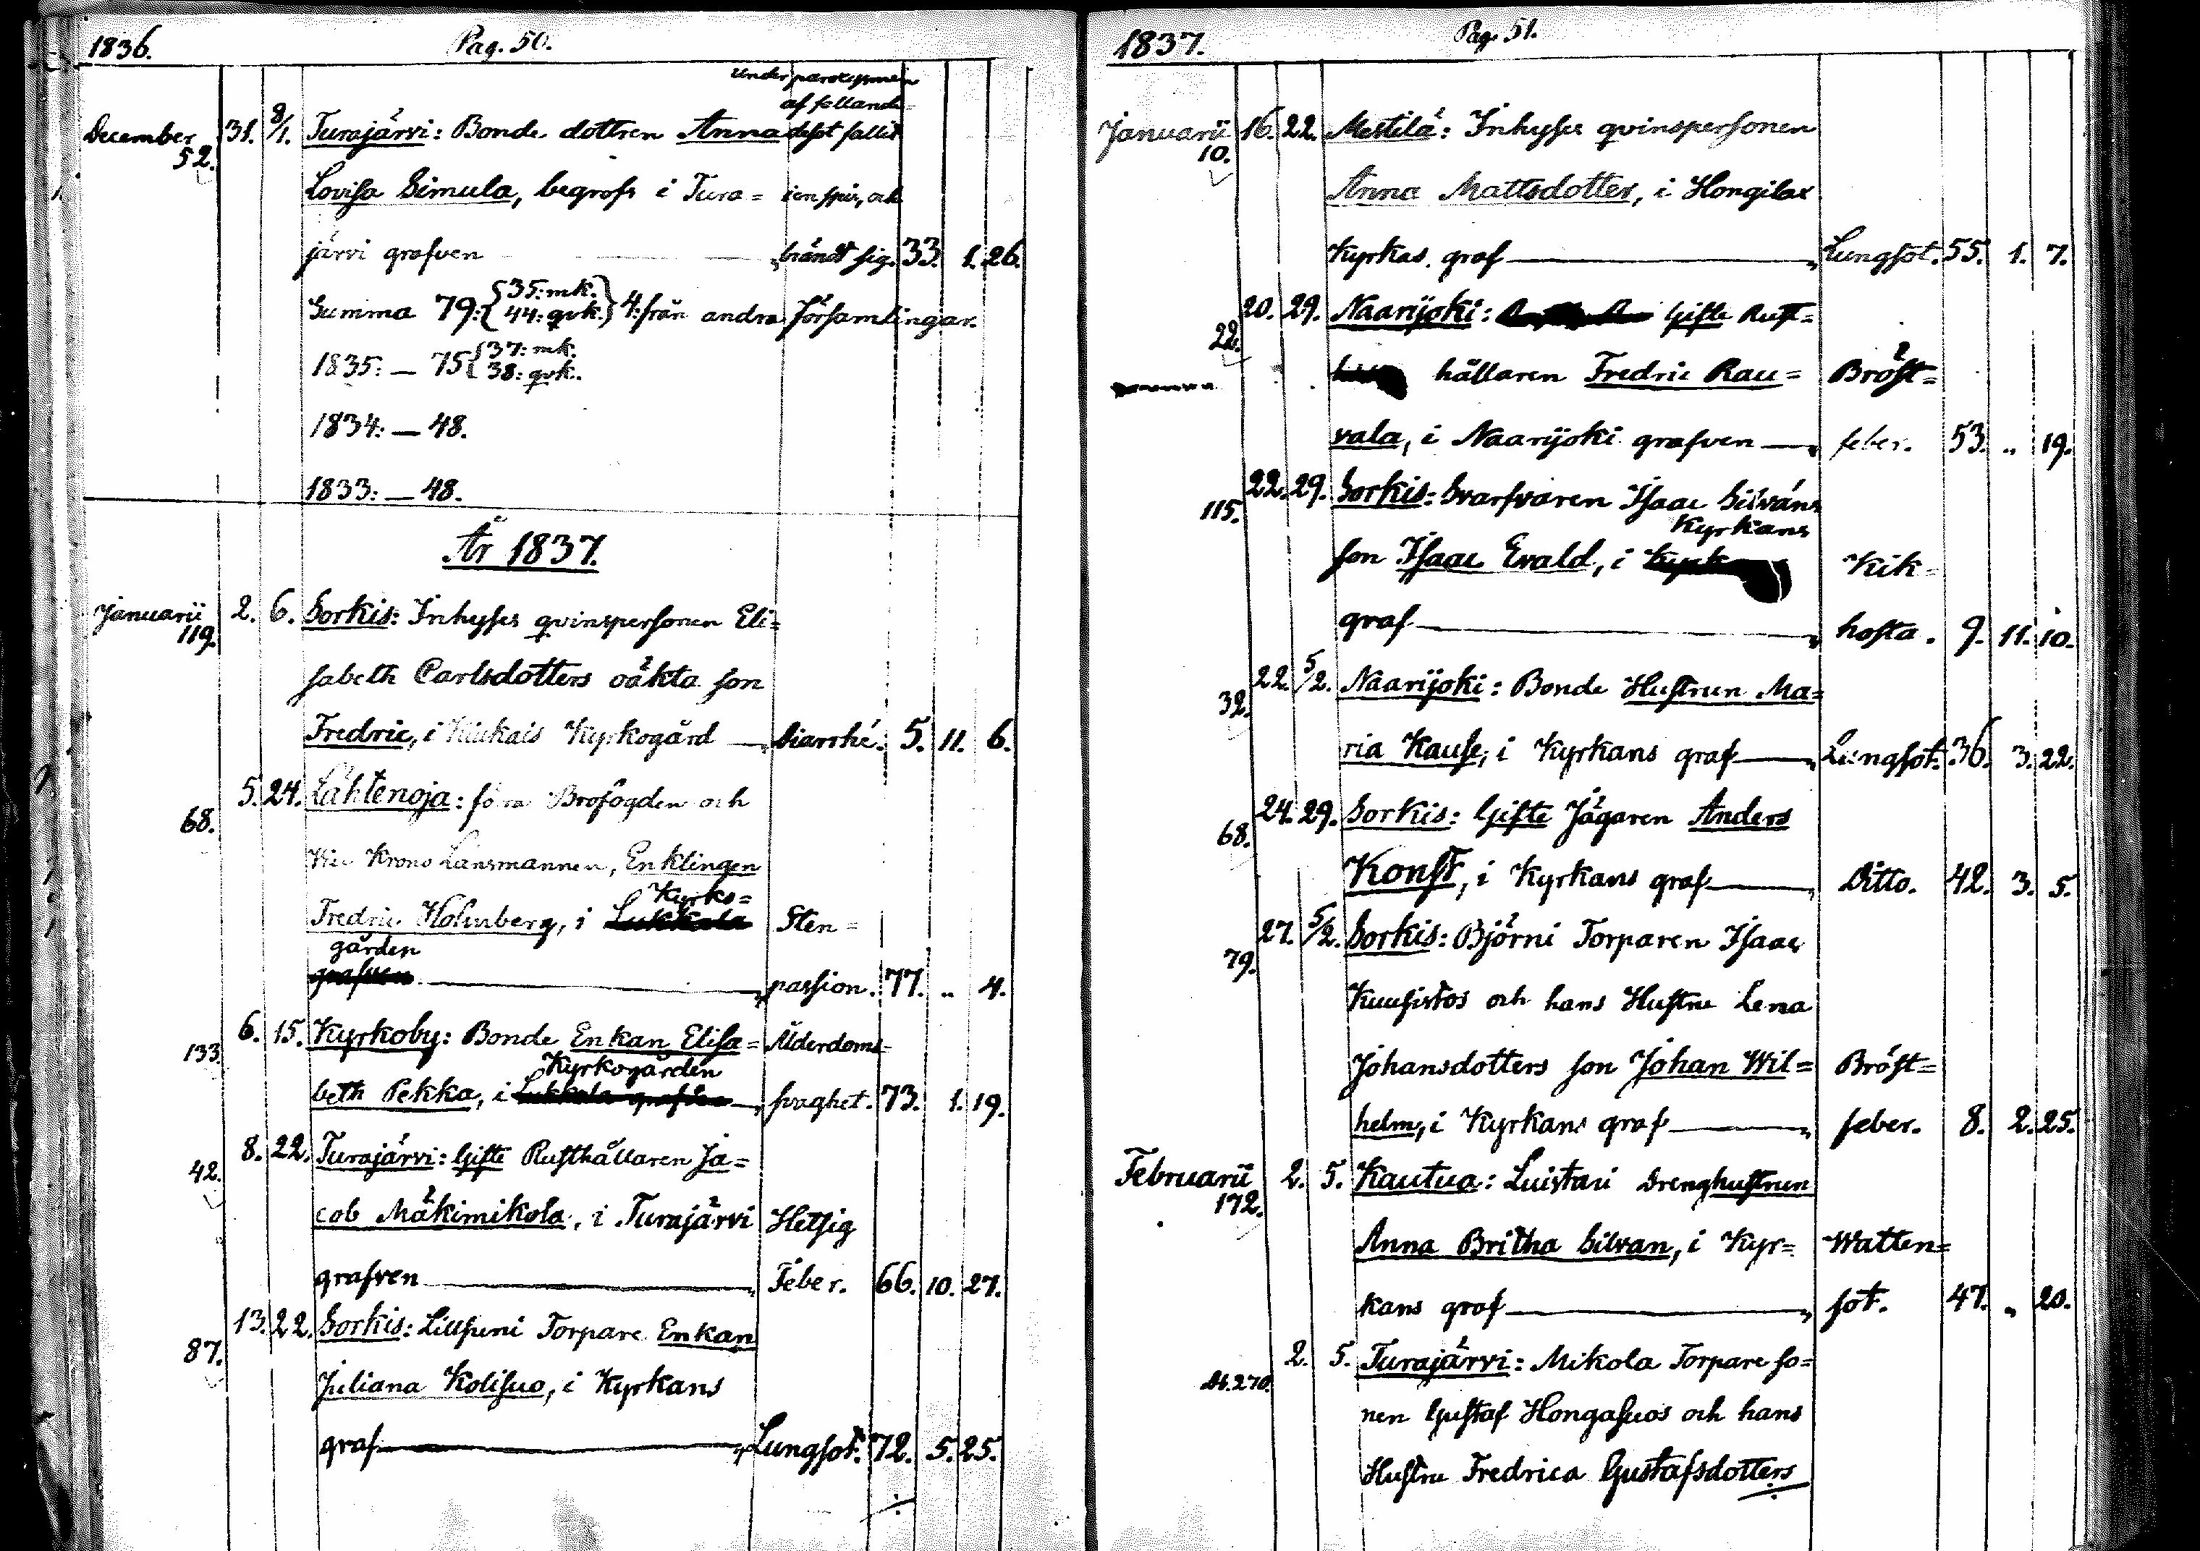 1836. Pag. 50.
under paroxysmen
af fallande=
December 31. 8/1. Turajärvi: Bonde dottren Anna desot fallit
52.
Lovisa Simula, begrofs i Tura= i en spis, och
järvi grafven — „ brändt sig. 33. 1. 26.
Summa 79: {35: mk. 44: qvk.} 4: från andra Församlingar.
1835: — 75 {37: mk. 38: qvk.
1834: — 48.
1833: — 48.
År 1837.
Januarii 2. 6. Sorkis: Inhyses qvinspersonen Eli=
119.
sabeth Carlsdotters oäkta son
Fredric, i Kiukais Kyrkogård — „ Diarrhé. 5. 11. 6.
5. 24. Lähtenoja: förra Brofogden och
68.
Vice Krono Länsmannen, Enklingen
Kyrko=
Fredric Holmberg, i Lukkala Sten=
gården
grafven — „ passion. 77. .. 4.
6. 15. Kyrkoby: Bonde Enkan Elisa= Ålderdoms=
133.
Kyrkogården
beth Pekka, i Lukkala grafven — „ svaghet. 73. 1. 19.
8. 22. Turajärvi: Gifte Rusthållaren Ja=
42.
cob Mäkimikola, i Turajärvi Hetsig
grafven — „ Feber. 66. 10. 27.
13. 22. Sorkis: Lillsuni Torpare Enkan
87.
Juliana Kolisuo, i Kyrkans
graf — „ Lungsot. 72. 5. 25.
1837. Pag. 51.
Januarii 16. 22. Mestilä: Inhyses qvinspersonen
10.
Anna Mattsdotter, i Hongilax
Kyrkas graf — „ Lungsot. 55. 1. 7.
20. 29. Naarijoki: Gifte Rust=
22.
hållaren Fredric Rau= Bröst=
vala, i Naarijoki grafven — „ feber. 53. .. 19.
22. 29. Sorkis: Svarfvaren Isaac Silváns
115.
Kyrkans
son Isaac Evald, i Kyrk Kik=
graf — „ hosta. 9. 11. 10.
22. 5/2. Naarijoki: Bonde Hustrun Ma=
32.
ria Kause, i Kyrkans graf — „ Lungsot. 36. 3. 22.
24. 29. Sorkis: Gifte Jägaren Anders
68.
Konst, i Kyrkans graf — „ Ditto. 42. 3. 5.
27. 5/2. Sorkis: Björni Torparen Isaac
79.
Kuusistos och hans Hustru Lena
Johansdotters son Johan Wil= Bröst=
helm, i Kyrkans graf — „ feber. 8. 2. 25.
Februarii 2. 5. Kautua: Luistari Drenghustrun
172.
Anna Britha Silvan, i Kyr= Watten=
kans graf — „ sot. 47. „ 20.
2. 5. Turajärvi: Mikola Torpare so=
270.
nen Gustaf Hongasuos och hans
Hustru Fredrica Gustafsdotters